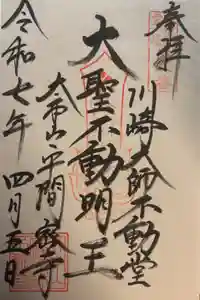 奉拝
川崎大師不動堂
大聖不動明王
大本山平間寺
令和七年四月五日